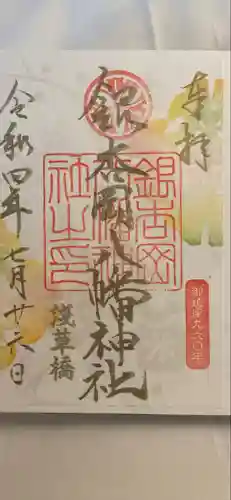 奉拝
銀杏岡八幡神社
浅草橋
令和四年七月廿六日
銀杏岡
八幡神
社之印
御鎮座九六〇年